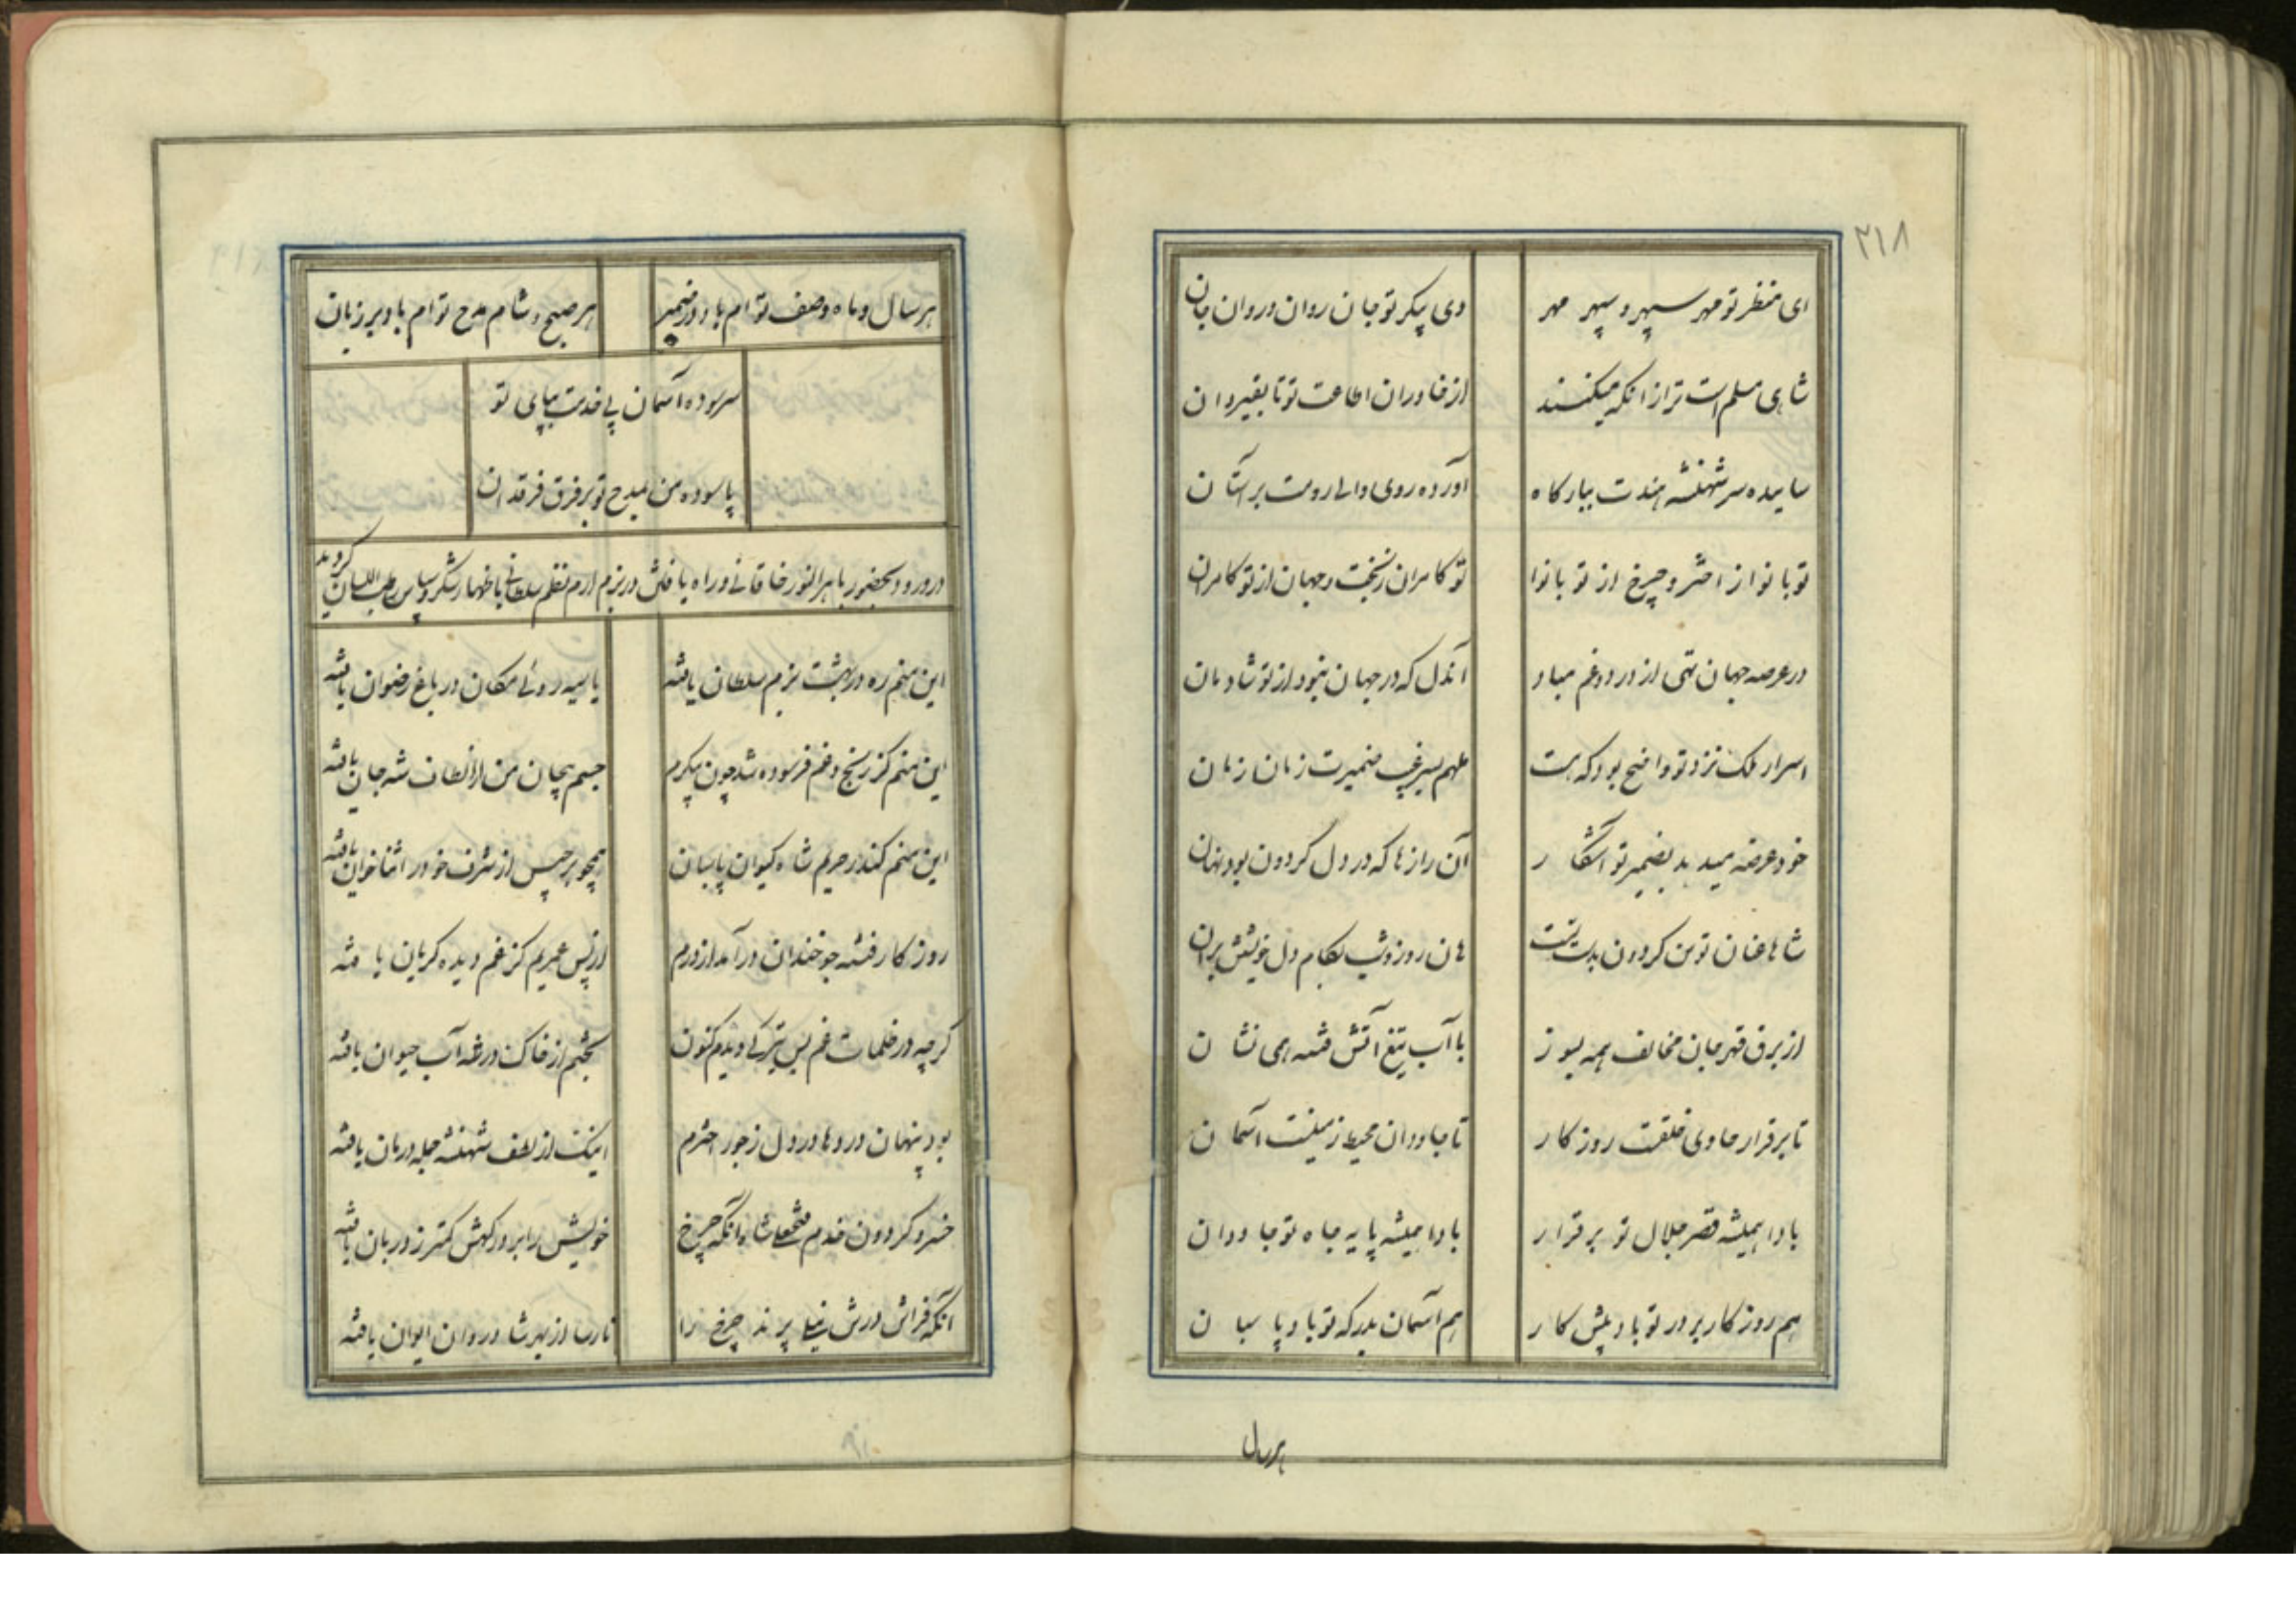 ۲۱۸
ای منظر تو مهر سپهر و سپهر مهر وی پیکر تو جان روان و روان جان
شاهی مسلم است ترا زانکه میکنند از خاوران اطاعت تو تا بقیروان
ساییده سر شهنشه هندت ببارگاه آورده روی والی رومت بر آستان
تو با نوا ز اختر و چرخ از تو با نوا تو کامران ز بخت و جهان از تو کامران
در عرصه جهان تهی از درد و غم مباد آندل که در جهان نبود از تو شادمان
اسرار ملک نزد تو واضح بود که هست ملهم بسر غیب ضمیرت زمان زمان
خود عرضه میدهد بضمیر تو آشکار آن رازها که در دل گردون بود نهان
شاها عنان توسن گردون بدست تست هان روز و شب بکام دل خویشتن بران
از برق قهر جان مخالف همه بسوز با آب تیغ آتش فتنه همی نشان
تا برقرار حاوی خلقت روزگار تا جاودان محیط زمینست آسمان
بادا همیشه قصر جلال تو برقرار بادا همیشه پایه جاه تو جاودان
هم روزگار بر در تو باد پیشکار هم آسمان بدرگه تو باد پاسبان
هرسال
هر سال و ماه وصف تو ام باد در ضمیر هر صبح و شام مدح تو ام باد بر زبان
سر سوده آسمان پی خدمت بپای تو
پا سوده من بمدح تو بر فرق فرقدان
در ورود بحضور باهرالنور خاقانی و راه یافتن در بزم ارم نظم سلطانی باظهار شکر و سپاس رطب اللسان گردید
این منم ره در بهشت بزم سلطان یافته یا سیه روئی مکان در باغ رضوان یافته
این منم کز رنج و غم فرسوده شد چون پیکرم جسم بیجان من از الطاف شه جان یافته
این منم کاندر حریم شاه کیوان پاسبان همچو برجیس از شرف خود را ثناخوان یافته
روزگار رفته چو خندان درآمد از درم از پس عمریم کز غم دیده گریان یافته
گرچه در ظلمات غم بس تیرگی دیدم کنون بختم از خاک درشه آب حیوان یافته
بود پنهان دردها در دل ز جور اخترم اینک از لطف شهنشه جمله درمان یافته
خسرو گردون خدم فتحعلی شاه آنکه چرخ خویش را بر درگهش کمتر ز دربان یافته
آنکه فراش درش نیلی پرند چرخ را نارسا از بهر شادروان ایوان یافته